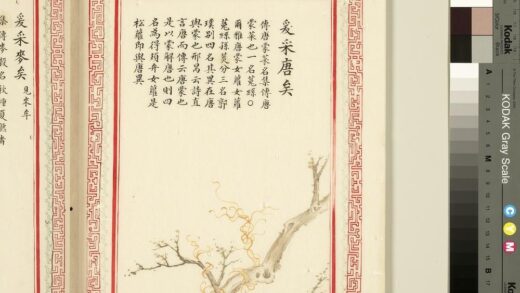 爰采唐矣
傳唐蒙菜名集傳唐
蒙菜也一名菟絲○
爾雅唐蒙女蘿女蘿
菟絲孫炎分三名郭
璞別四名其異在唐
與蒙也邢昺云詩直
言唐而傳云唐蒙也
是以蒙解唐也則四
名為得頍弁女蘿是
松蘿即與唐異
爰采麥矣 見來牟
集傳麥穀名秋種夏熟者
Kodak
KODAK Gray Scale
C Y M
A 1 2 3 4 5 6 M 8 9 10 11 12 13 14 15 B 17